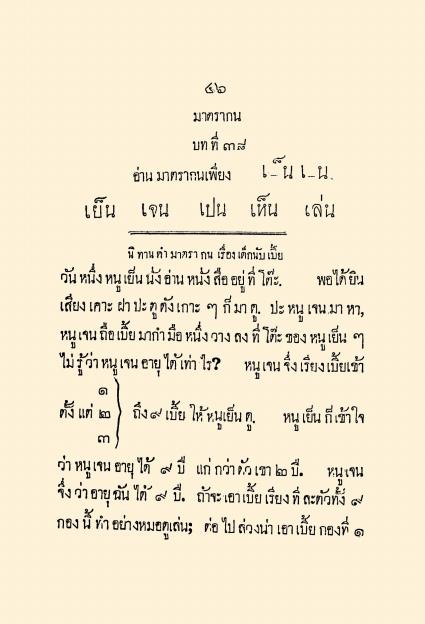 ๔๖
มาตรากน
บท ที่ ๓๘
อ่าน มาตรากนเพี่ยง เ–็น เ–น.
เย็น เจน เปน เห็น เล่น
นิ ทาน คำ มาตรา กน เรื่อง เด็กนับ เบี้ย
วัน หนึ่ง หนู เย็น นั่ง อ่าน หนัง สือ อยู่ ที่ โต๊ะ. พอ ได้ ยิน
เสียง เคาะ ฝา ปะ ตู ดัง เกาะ ๆ ก็ มา ดู. ปะ หนู เจน มา หา,
หนู เจน ถือ เบี้ย มา กำ มือ หนึ่ง วาง ลง ที่ โต๊ะ ของ หนู เย็น ๆ
ไม่ รู้ ว่า หนู เจน อายุ ได้ เท่า ไร? หนู เจน จึ่ง เรียง เบี้ยเข้า
๑
ตั้ง แต่ ๒ } ถึง ๙ เบี้ย ให้ หนูเย็น ดู. หนู เย็น ก็ เข้า ใจ
๓
ว่า หนู เจน อายุ ได้ ๙ ปี แก่ กว่า ตัว เขา ๒ ปี. หนู เจน
จึ่ง ว่า อายุ ฉัน ได้ ๙ ปี. ถ้าจะ เอา เบี้ย เรียง ที่ ละตัวทั้ง ๙
กอง นี้ ทำ อย่างหมอดูเล่น; ต่อ ไป ล่วงน่า เอา เบี้ย กองที่ ๑